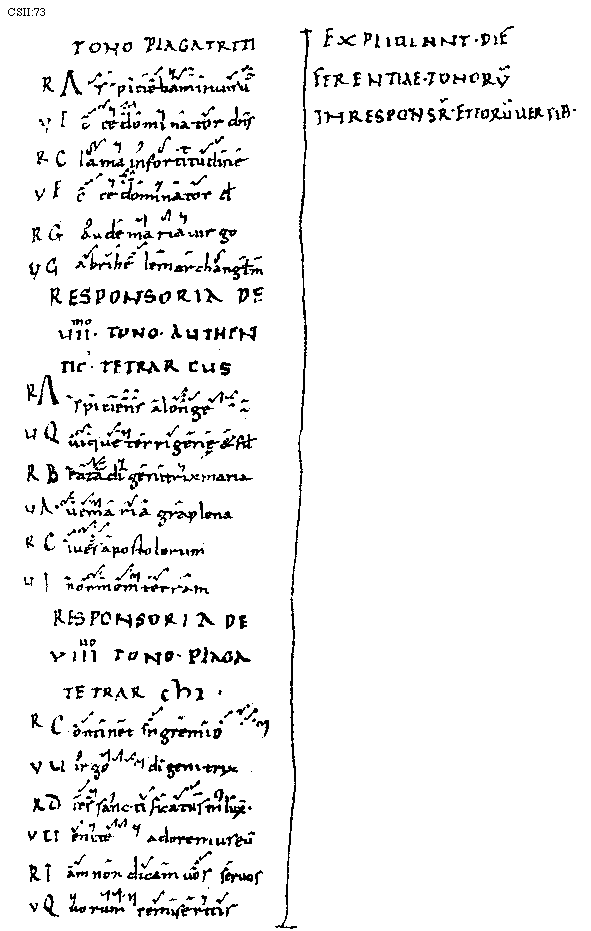 CSII:73
TONO PLAGA TRITI
R Aspiciebam in uisu
V Ecce dominator dns
R Clama in fortitudine
V Ecce dominator
R Gaude maria uirgo
V Gabrihelem archangelm
RESPONSORIA DE
VII mo TONO AUTHEN
TIC TETRARCUS
R Aspiciens a longe
V Quique terrigenę & fil
R Beata di genitrix maria
V Aue maria gra plena
R Ciues apostolorum
V In omnem terram
RESPONSORIA DE
VIII no TONO PLAGA
TETRARCHI
R Continet in gremio
V Uirgo di genitrix
R Dies sanctificatus inlux
V Uenite adoremus eū
R Iam non dicam uos seruos
V Quorum remiseritis
EXPLICIUNT DIF
FERENTIAE TONORU
IN RESPONSR ET EORU UERSIB